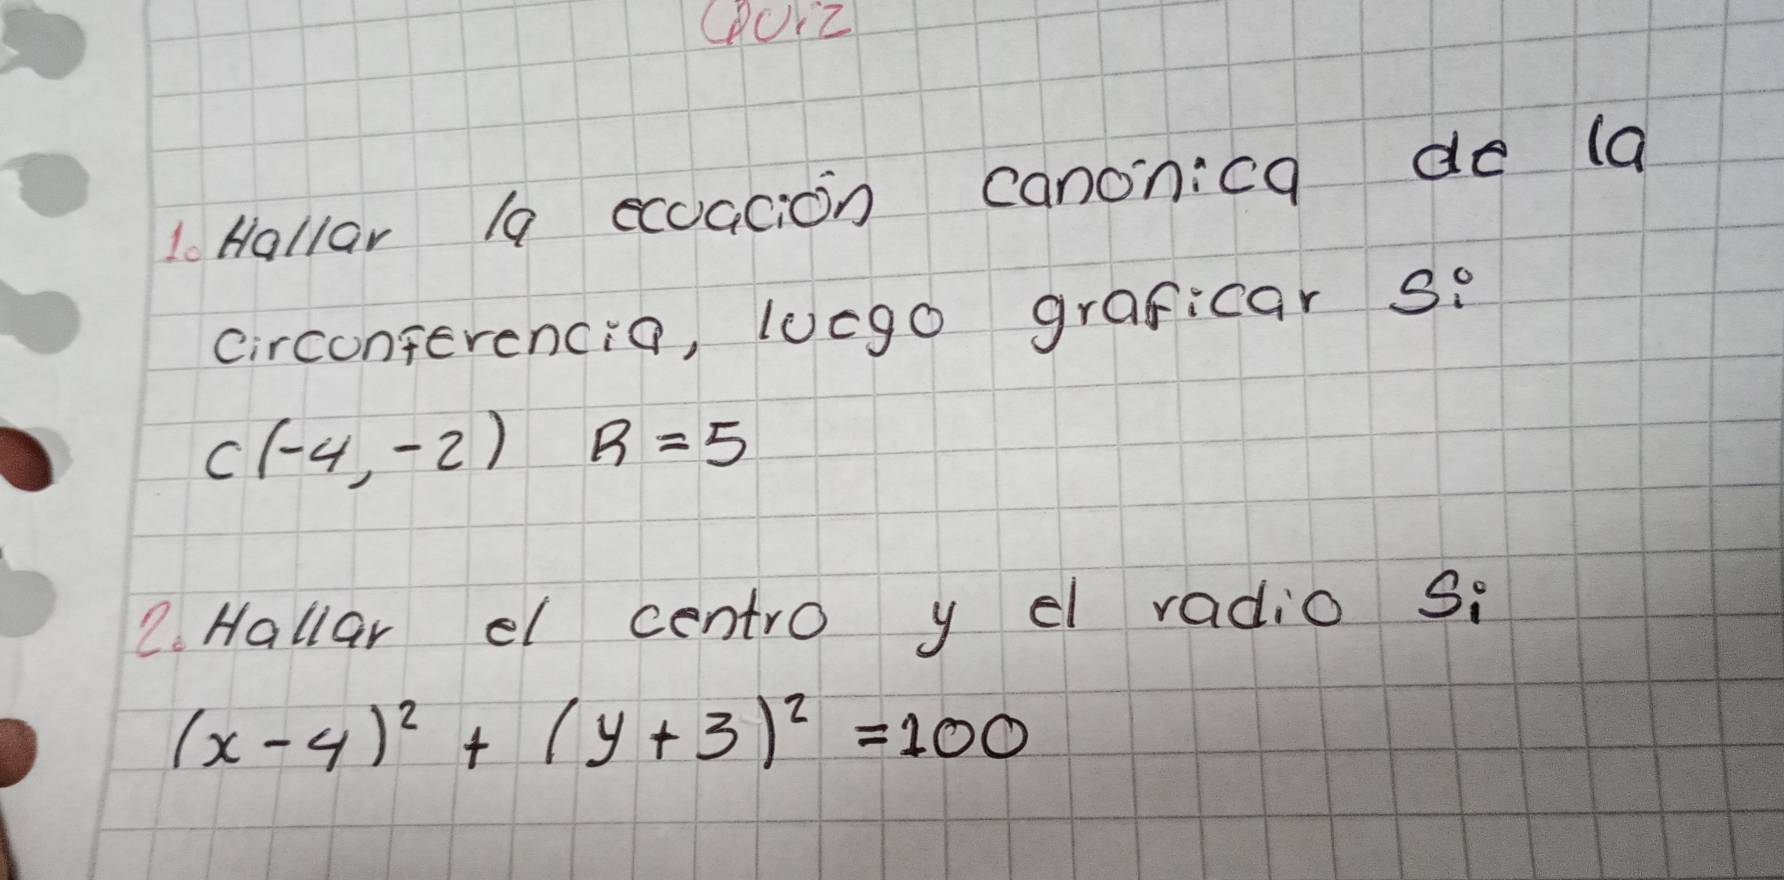 Quiz
1. Hallar la ecuación canónica de la
circunferencia, luego graficar si
C(-4, -2) R = 5
2. Hallar el centro y el radio si
(x - 4)² + (y + 3)² = 100